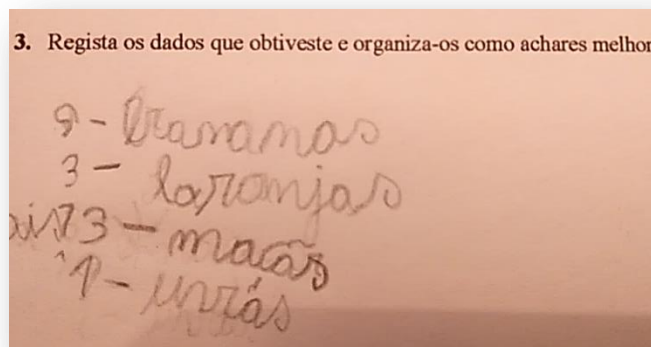 3. Regista os dados que obtiveste e organiza-os como achares melhor
9 - bananas
3 - laranjas
3 - maçãs
1 -